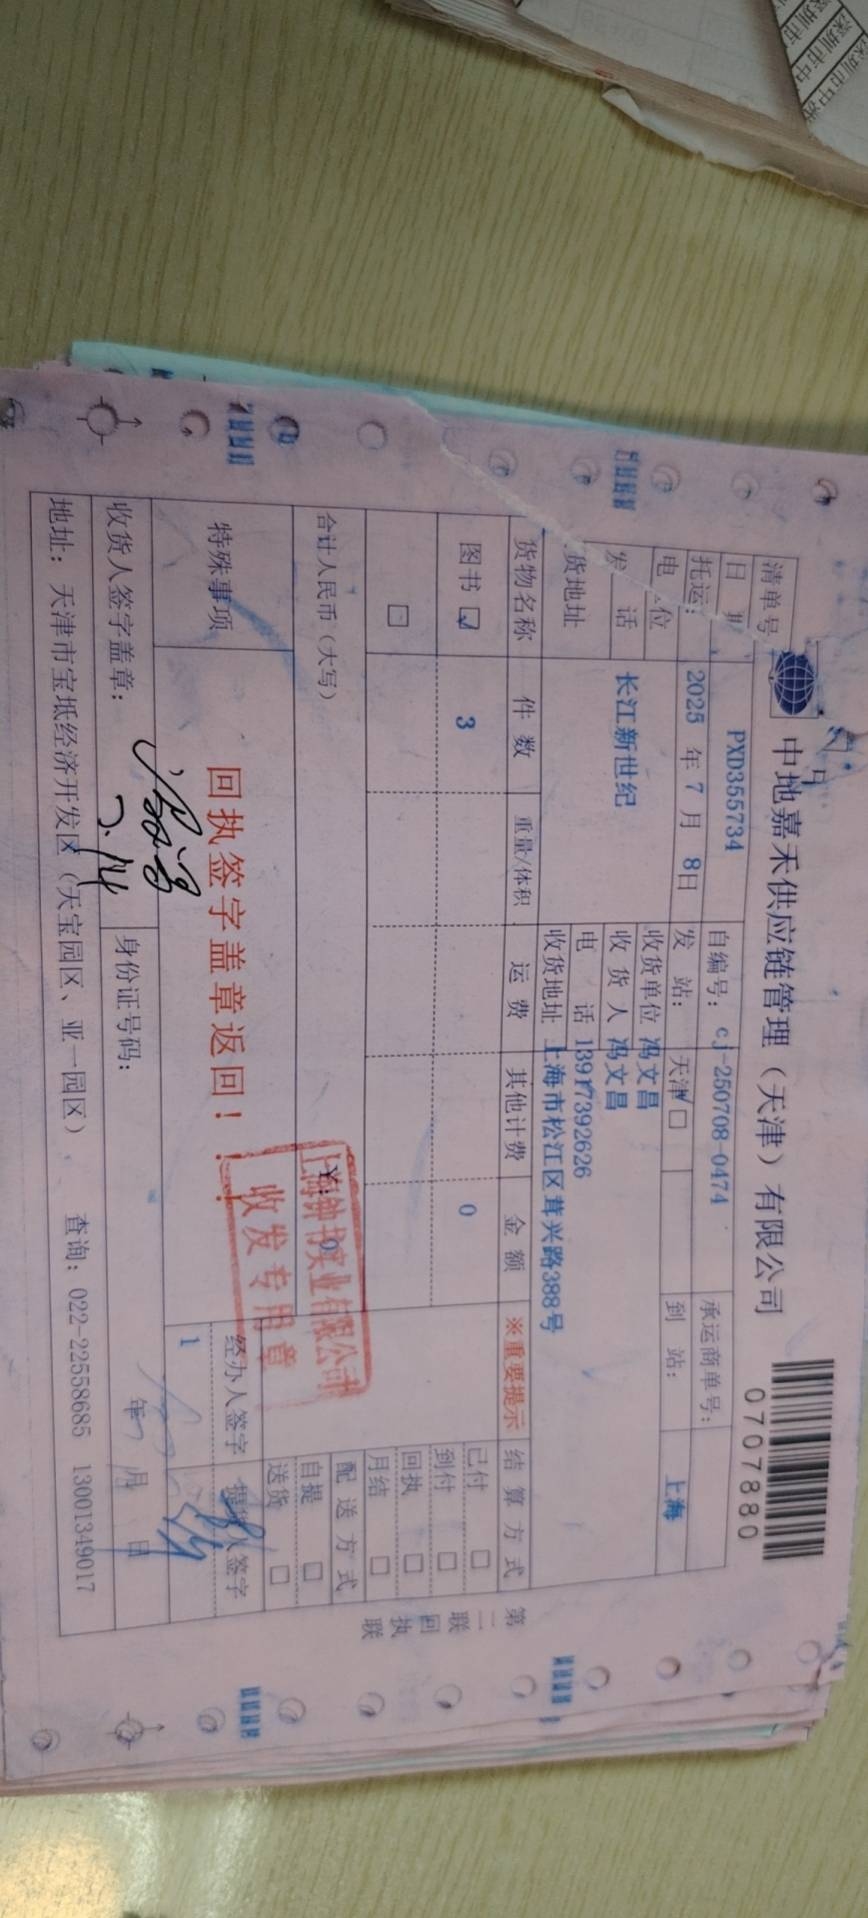 中地嘉禾供应链管理（天津）有限公司
0707880
清单号 PXD355734 自编号：cj-250708-0474 承运商单号：
日 2025 年 7 月 8日 发 站： 天津 □ 到 站： 上海
托运
位 长江新世纪 收货单位 冯文昌
电 话 收 货 人 冯文昌
发货地址 电 话 13917392626
收货地址 上海市松江区茸兴路388号
货物名称 件 数 重量/体积 运 费 其他计费 金 额 ※重要提示 结 算 方 式
图书 ☑ 3 0 已付 □
到付 □
□ 回执 □
月结 □
合计人民币（大写） ¥: 0 配 送 方 式
自提 □
送货 □
特殊事项 回执签字盖章返回！！ 经办人签字 提货人签字
1
收货人签字盖章： 7.14 身份证号码： 年 月 日
地址：天津市宝坻经济开发区（天宝园区、亚一园区） 查询：022-22558685 13001349017
第二联 回执联
上海钟书实业有限公司
收发专用章
深圳市
深圳市中
深圳市中